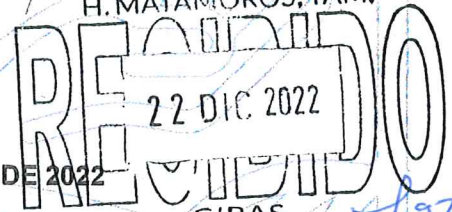 H. MATAMOROS, TAM.
RECIBIDO
22 DIC 2022
DE 2022